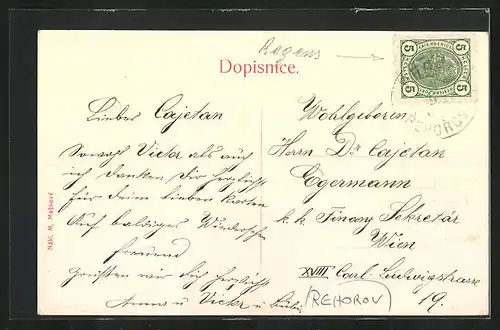 Regens
Dopisnice.
Liebes Cajetan
Sowohl Victor als auch
ich danken Dir herzlichst
für Deine lieben Karten
Auf baldiges Wiedersehen
freuend
grüssen wir Dich herzlichst
Anna u Victor u
Wohlgeboren
Herrn Dr Cajetan
Egermann
k. k. Finanz Sekretär
Wien
XVIII Carl Ludwigstrasse
19.
(REHOROV)
Nákl. M. Mašková
5 5
5 5